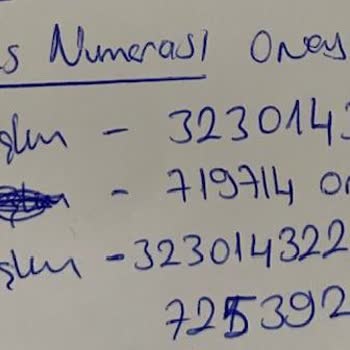 s Numerası Onay
şlem - 3230143
- 719714 On
şlem - 323014322
725392